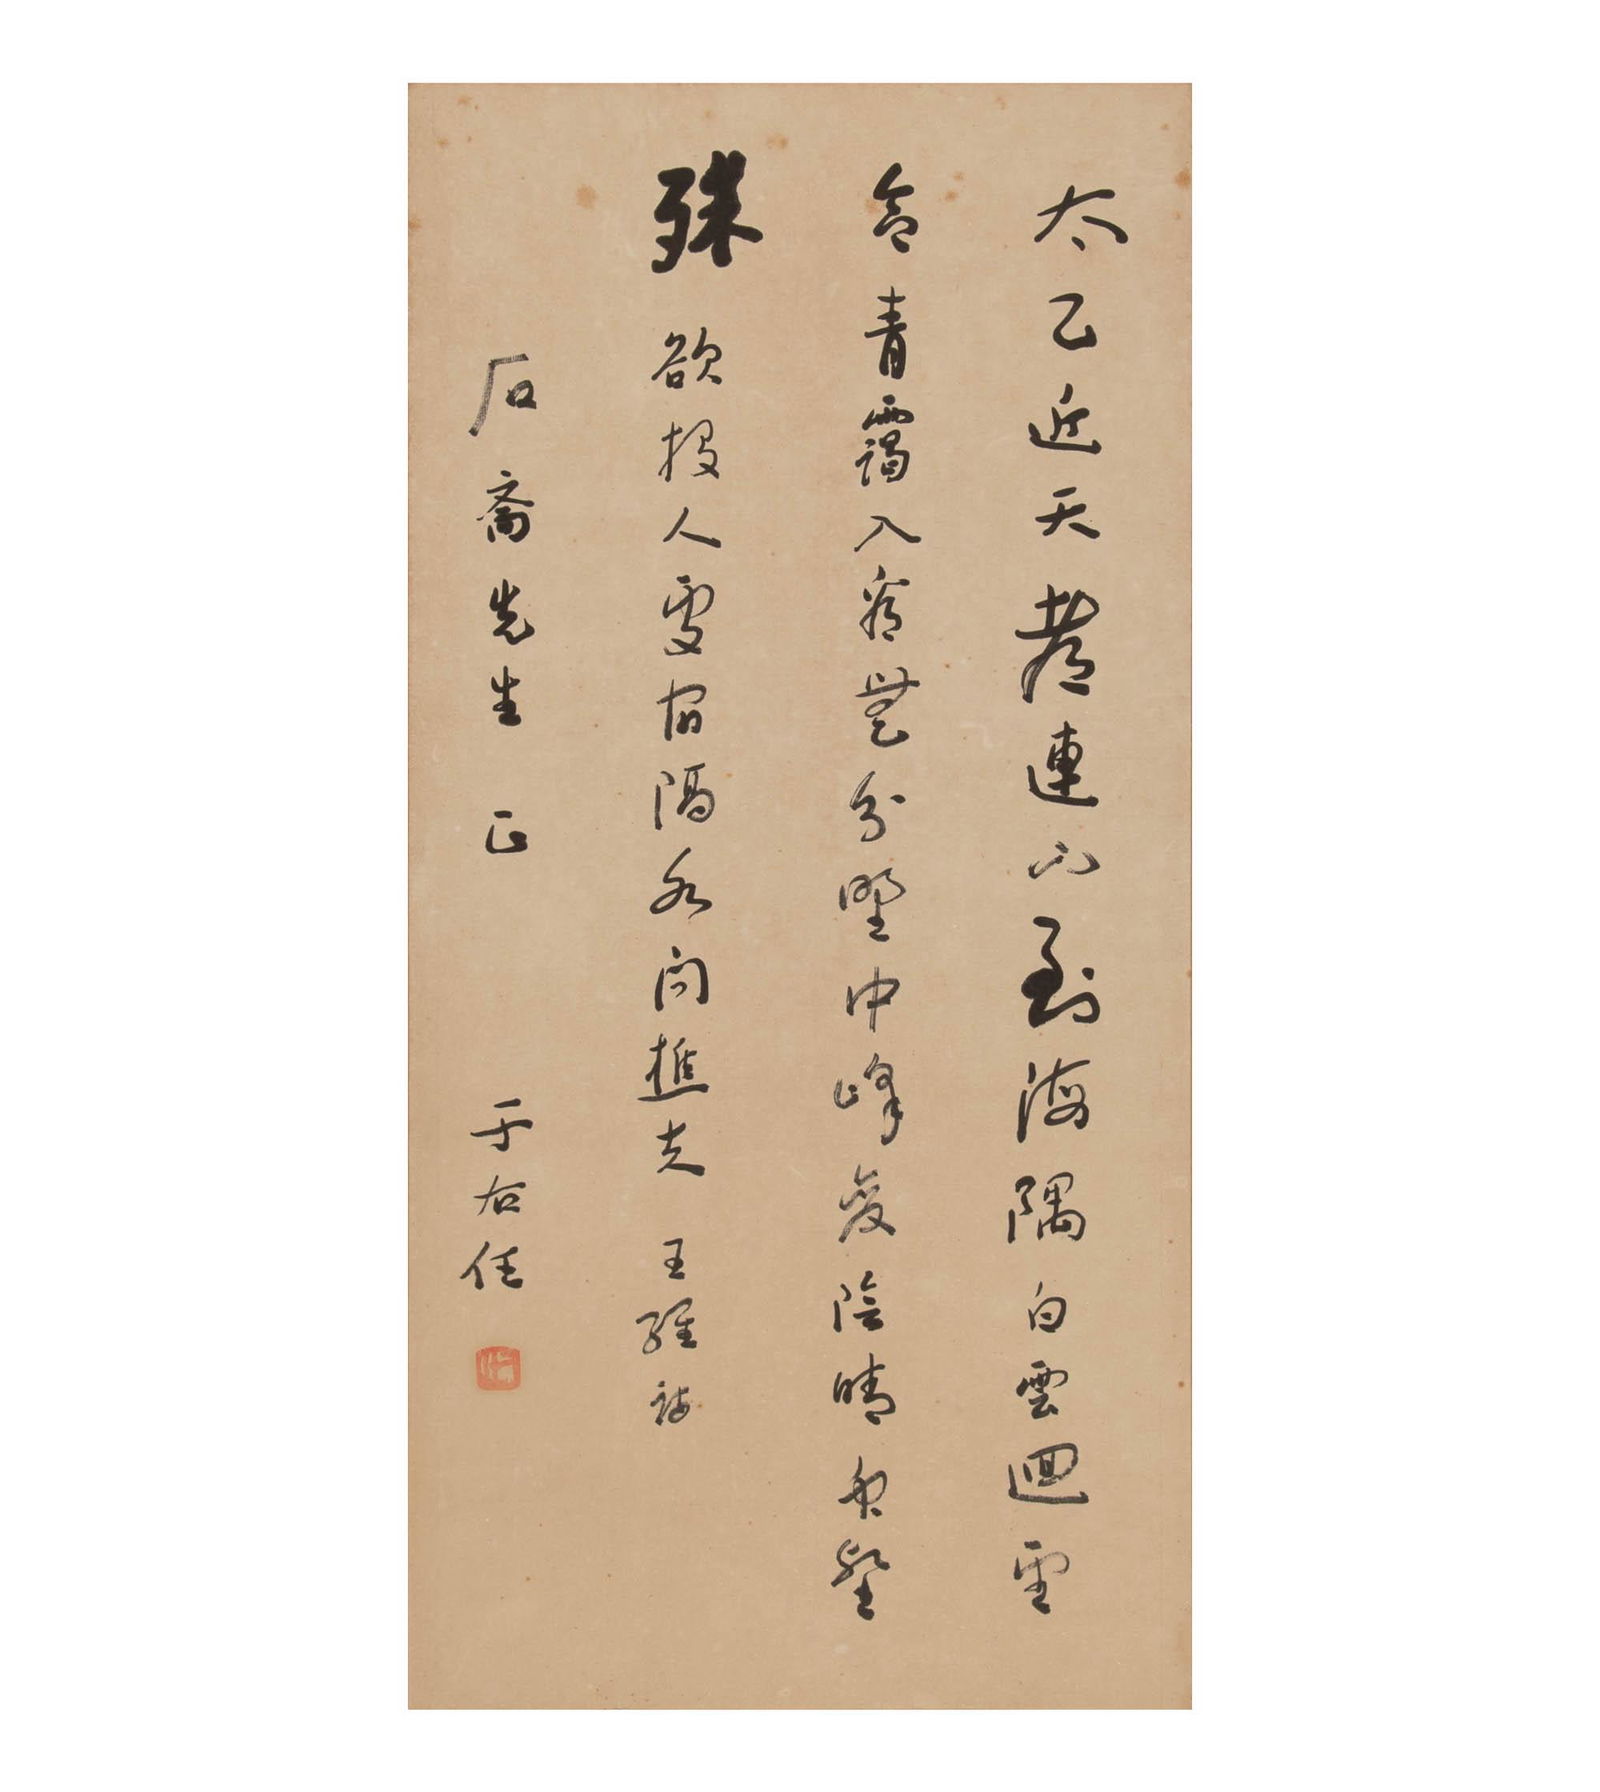 太乙近天都連山到海隅白雲迴望
合青靄入看無分野中峰變陰晴衆壑
殊欲投人處宿隔水問樵夫 王維詩
石齋先生 正 于右任